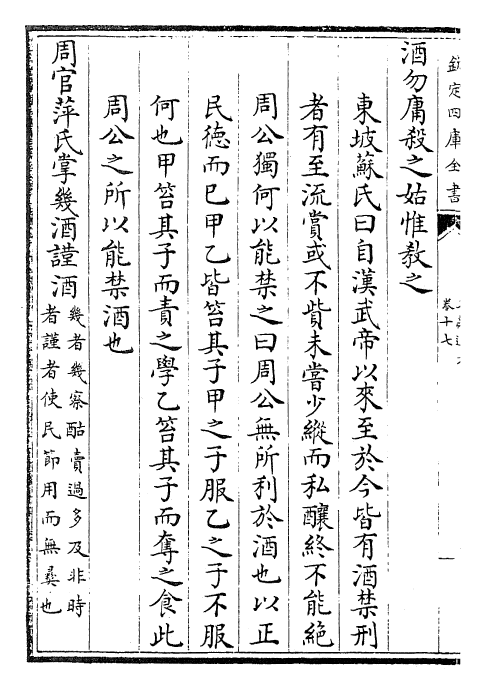 欽定四庫全書
卷十七
一
酒勿庸殺之姑惟教之
東坡蘇氏曰自漢武帝以來至於今皆有酒禁刑
者有至流賞或不貲未嘗少縱而私釀終不能絶
周公獨何以能禁之曰周公無所利於酒也以正
民德而已甲乙皆笞其子甲之子服乙之子不服
何也甲笞其子而責之學乙笞其子而奪之食此
周公之所以能禁酒也
周官萍氏掌幾酒謹酒
幾者幾察酤賣過多及非時
者謹者使民節用而無彛也